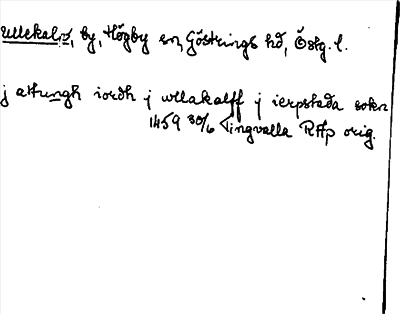 Ullekalv, by, Högby sn, Göstrings hd, Östg. l.
j attungh iordh j vllakalff j ierpstada sokn
1459 30/6 Tingvalla RAp orig.